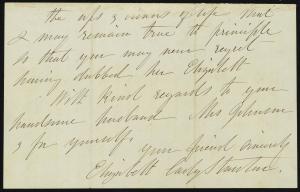 the ups & downs of life that
I may remain true to principle
so that you may never regret
having dubbed her Elizabeth
With kind regards to your
handsome husband Mrs Johnson
& for yourself,
your friend sincerely
Elizabeth Cady Stanton.